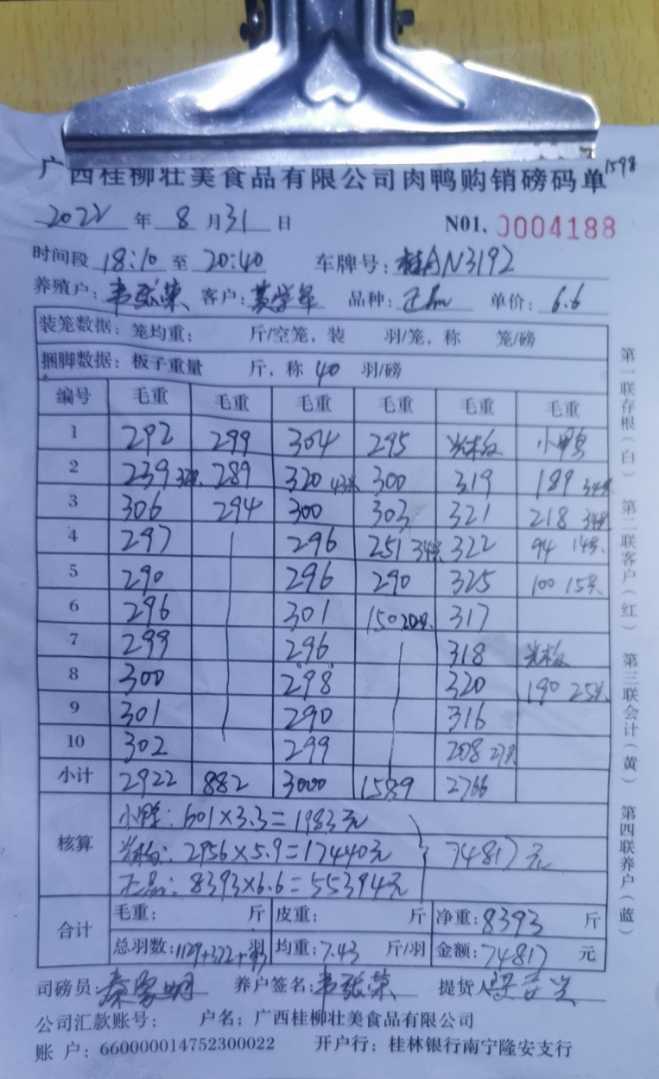 广西桂柳壮美食品有限公司肉鸭购销磅码单 1598
2022 年 8 月 31 日 N01. 0004188
时间段 18:10 至 20:40 车牌号: 桂AN3192
养殖户: 韦张荣 客户: 品种: 单价: 6.6
装笼数据: 笼均重: 斤/空笼, 装 羽/笼, 称 笼/磅
捆脚数据: 板子重量 斤, 称 40 羽/磅
编号 毛重 毛重 毛重 毛重 毛重 毛重
1 292 299 304 295 小鸭
2 239 289 320 300 319 189 34只
3 306 294 300 303 321 218
4 297 296 251 34只 322 94 14只
5 290 296 290 325 100 15只
6 296 301 150 20只 317
7 299 296 318
8 300 298 320 190 25只
9 301 290 316
10 302 299 208 27只
小计 2922 882 3000 1589 2766
核算 小鸭: 601×3.3=1983元
2956×5.9=17440元 74817元
正品: 8393×6.6=55394元
合计 毛重: 斤 皮重: 斤 净重: 8393 斤
总羽数: 1129+372+ 羽 均重: 7.43 斤/羽 金额: 74817 元
司磅员: 秦家明 养户签名: 韦张荣 提货
公司汇款账号: 户名: 广西桂柳壮美食品有限公司
账 户: 660000014752300022 开户行: 桂林银行南宁隆安支行
第一联存根(白) 第二联客户(红) 第三联会计(黄) 第四联养户(蓝)